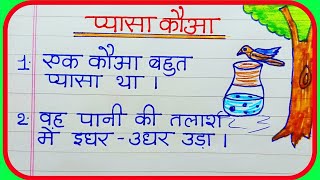 प्यासा कौआ
1. एक कौआ बहुत
प्यासा था ।
2. वह पानी की तलाश
में इधर-उधर उड़ा ।